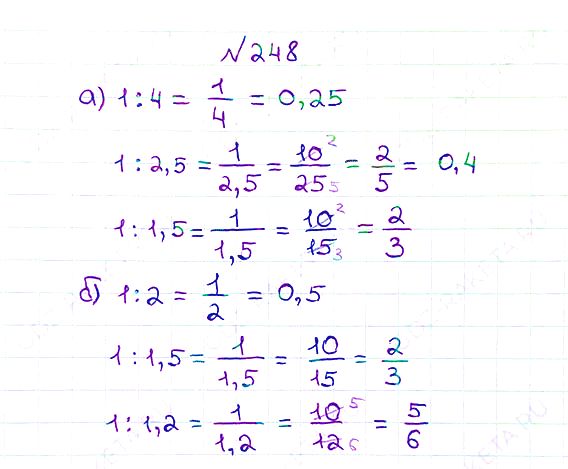 №248
а) 1:4 = 1/4 = 0,25
1:2,5 = 1/2,5 = 10²/25₅ = 2/5 = 0,4
1:1,5 = 1/1,5 = 10²/15₃ = 2/3
б) 1:2 = 1/2 = 0,5
1:1,5 = 1/1,5 = 10/15 = 2/3
1:1,2 = 1/1,2 = 10⁵/12₆ = 5/6